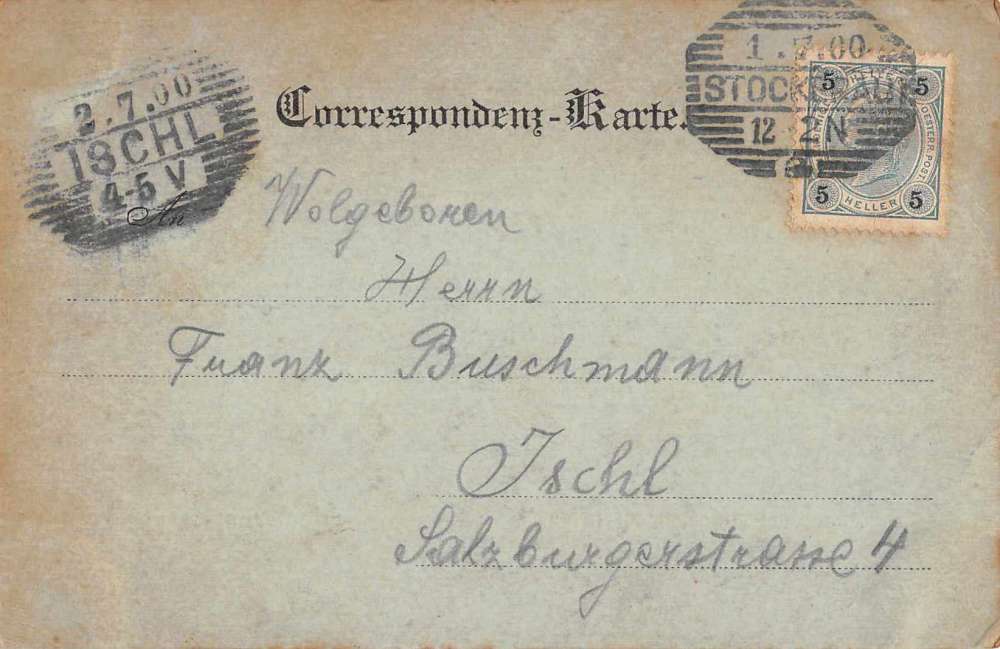 2.7.00
ISCHL
4-5 V
1.7.00
STOCKERAU
12-2N
Correspondenz-Karte.
5 HELLER 5
OESTERR. POST.
5 HELLER 5
An
Wolgeboren
Herrn
Franz Buschmann
Ischl
Salzburgerstrasse 4